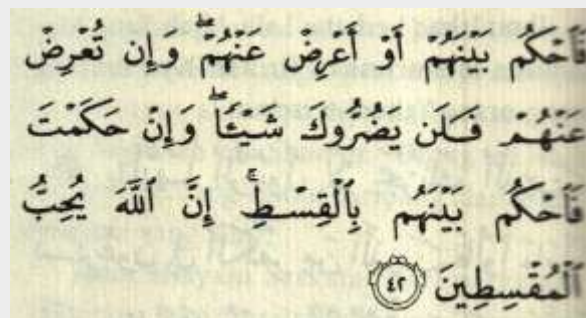 فَٱحْكُم بَيْنَهُمْ أَوْ أَعْرِضْ عَنْهُمْ ۖ وَإِن تُعْرِضْ
عَنْهُمْ فَلَن يَضُرُّوكَ شَيْـًٔا ۖ وَإِنْ حَكَمْتَ
فَٱحْكُم بَيْنَهُم بِٱلْقِسْطِ ۚ إِنَّ ٱللَّهَ يُحِبُّ
ٱلْمُقْسِطِينَ ٤٢